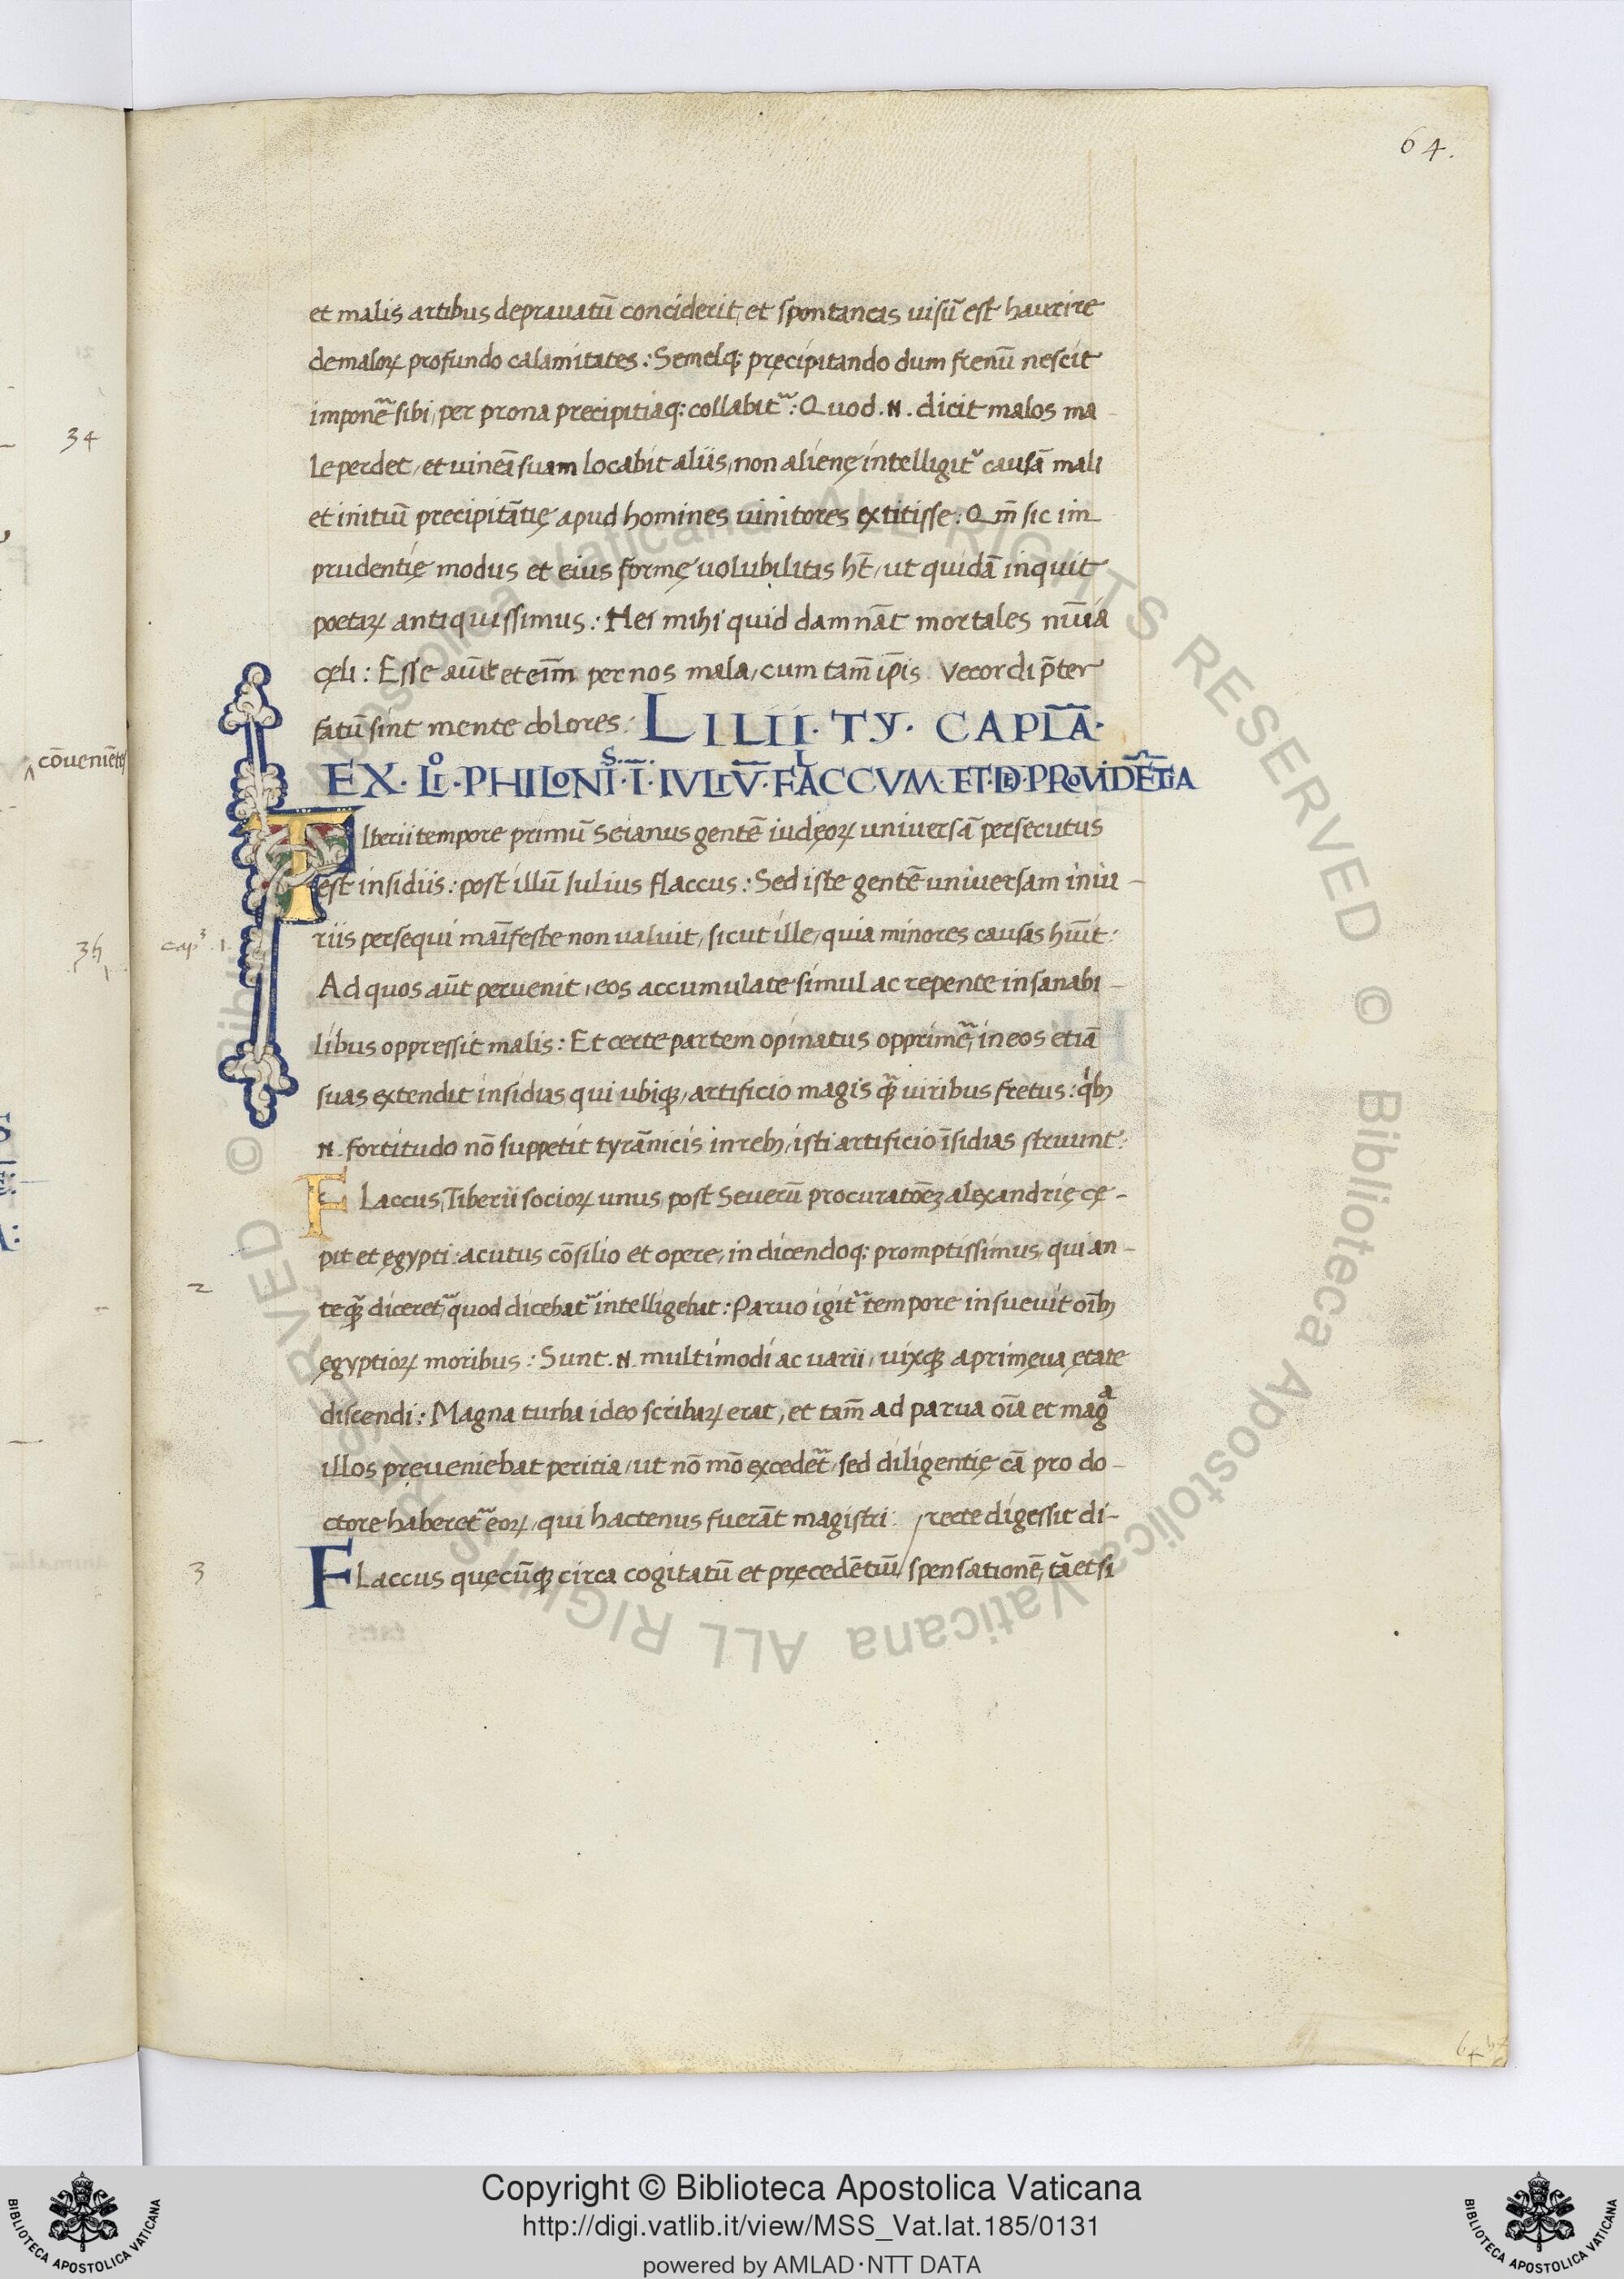 64.
et malis artibus deprauatū conciderit, et spontaneas uisū est haurire
de maloꝝ profundo calamitates : Semelqꝫ pręcipitando dum frenū nescit
imponẽ sibi, per prona precipitiaqꝫ collabit᷑ : Quod .N. dicit malos ma
34
le perdet, et uineā suam locabit aliis, non alienę intelligit᷑ causā mali
et initiū precipitātię apud homines uinitores extitisse. Qm̄ sic im
prudentię modus et eius formę uolubilitas ht̄, ut quidā inquit
poetaꝝ antiquissimus : Hei mihi quid damnāt mortales nūia
cęli : Esse aiūt et eīm per nos mala, cum tam̄ ip̄is Vecordi p̄ter
fatū sint mente dolores. LILII · TY · CAPL̄A ·
cōueniētes
EX · LI° · PHILONIS · I · IVLIV̄ · FLACCVM · ET · DE · PROVIDĒTIA
Tiberii tempore primū Seianus gentē iudęoꝝ uniuersā persecutus
est insidiis : post illū Iulius flaccus : Sed iste gentē uniuersam iniu-
cap³ 1
riis persequi māifeste non ualuit, sicut ille, quia minores causas hūit :
Ad quos aūt peruenit, eos accumulate simul ac repente insanabi-
libus oppressit malis : Et certe partem opinatus opprimẽ, in eos etiā
suas extendit insidias qui ubiqꝫ, artificio magis qꝫ̄ uiribus fretus : qͥbꝫ
.N. fortitudo nō suppetit tyrānicis in rebꝫ, isti artificio īsidias struunt.
Flaccus, Tiberii socioꝝ unus, post Seuerū procuratōeꝫ alexandrię cę-
pit et ęgypti : acutus cōsilio et opere, in dicendoqꝫ promptissimus, qui an-
2
teqꝫ̄ diceret᷑, quod dicebat᷑ intelligebat : Paruo igit᷑ tempore insueuit oībꝫ
ęgyptioꝝ moribus : Sunt .N. multimodi ac uarii, uixqꝫ a primęua ętate
discendi : Magna turba ideo scribaꝝ erat, et tam̄ ad parua oīa et magᵃ
illos preueniebat peritia, ut nō mō excedẽt, sed diligentię cā pro do-
ctore haberet᷑ eoꝝ, qui hactenus fuerāt magistri. / recte digessit di-
3
Flaccus quęcūqꝫ circa cogitatū et pręcedētiū / spensationē, tāetsi
Copyright © Biblioteca Apostolica Vaticana
http://digi.vatlib.it/view/MSS_Vat.lat.185/0131
powered by AMLAD · NTT DATA
BIBLIOTECA APOSTOLICA VATICANA
BIBLIOTECA APOSTOLICA VATICANA
© Biblioteca Apostolica Vaticana ALL RIGHTS RESERVED
© Biblioteca Apostolica Vaticana ALL RIGHTS RESERVED